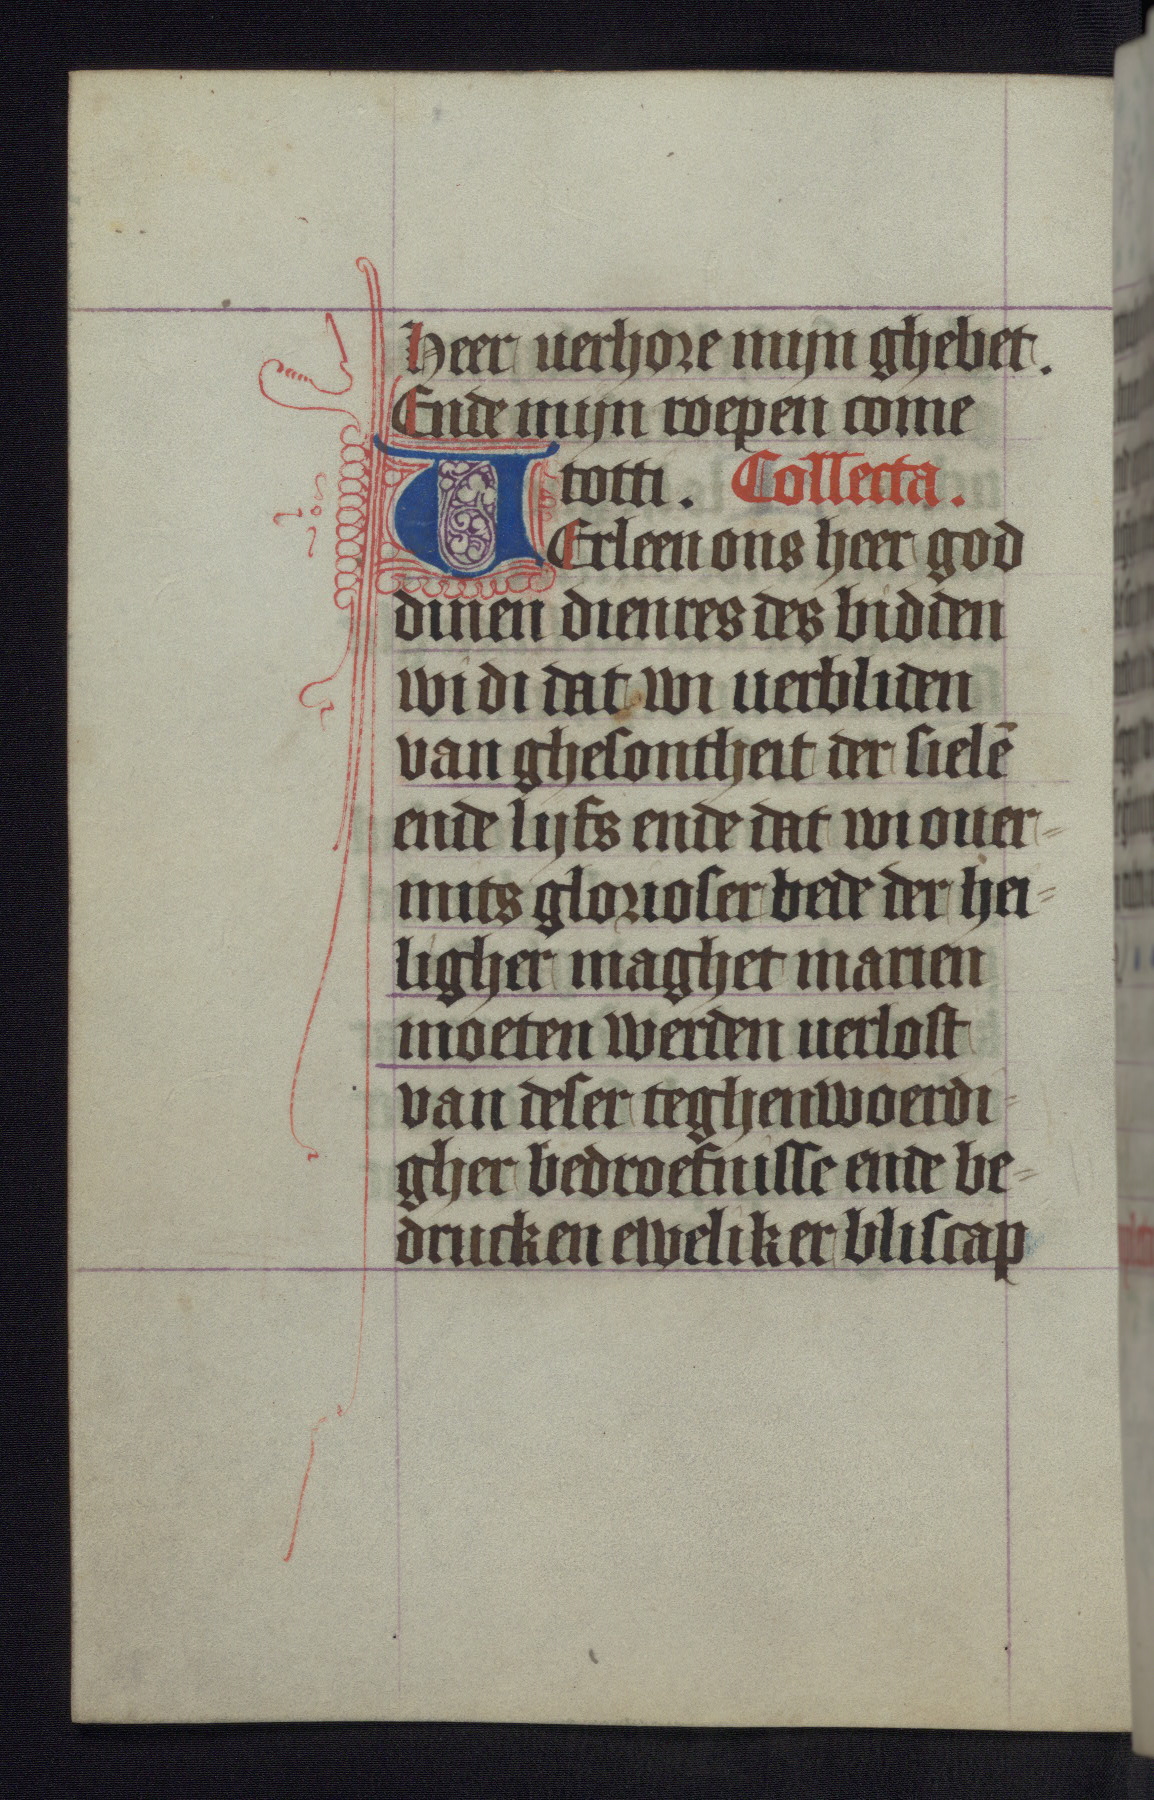 Heer uerhore mijn ghebet.
Ende mijn roepen come
totti. Collecta.
UErleen ons heer god
dinen dienres des bidden
wi di dat wi uerbliden
van ghesontheit der sielē
ende lijfs ende dat wi ouer=
mits glorioser bede der hei=
ligher maghet marien
moeten werden uerlost
van deser teghenwoerdi=
gher bedroefnisse ende be=
drucken eweliker bliscap